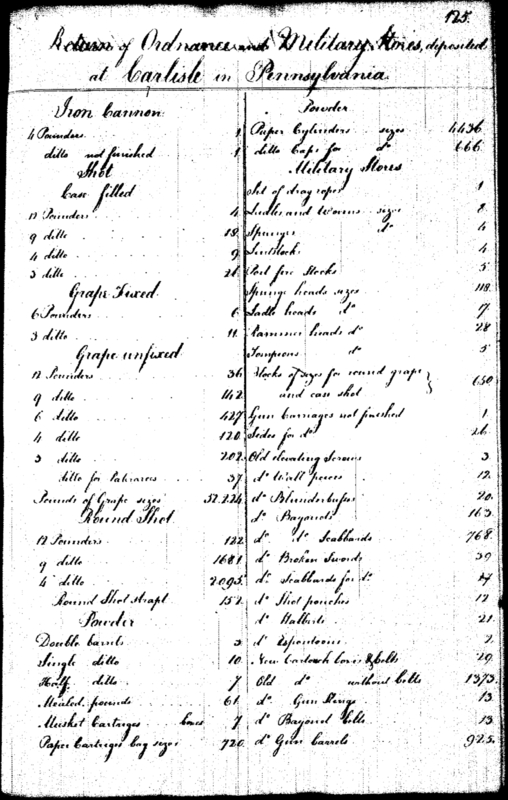 125.
Return of Ordnance and Military Stores, deposited
at Carlisle in Pennsylvania
Iron Cannon
4 Pounders 1
ditto not finished 1
Shot
Case filled
12 Pounders 4
9 ditto 18
4 ditto 9
3 ditto 21
Grape Fixed
6 Pounders 6
3 ditto 11
Grape unfixed
12 Pounders 36
9 ditto 142
6 ditto 427
4 ditto 120
3 ditto 202
ditto for Patararoes 37
Pounds of Grape sizes 52.224
Round Shot
12 Pounders 122
9 ditto 1681
4 ditto 2095
Round Shot strapt 152
Powder
Double barrels 3
Single ditto 10
Half ditto 7
Mealed pounds 61
Musket Cartriges boxes 7
Paper Cartriges bag sizes 720
Powder
Paper Cylinders sizes 4436
ditto Caps for do 666
Military Stores
Set of drag ropes 1
Ladles and Worms sizes 8
Spunges do 4
Linstocks 4
Port fire Stocks 5
Spunge heads sizes 118
Ladle heads do 17
Rammer heads do 28
Tompions do 5
Stocks of sizes for round grape
and case shot } 650
Gun Carriages not finished 1
Sides for do 26
Old elevating Screws 3
do Wall pieces 12
do Blunderbusses 20
do Bayonets 163
do do Scabbards 768
do Broken Swords 39
do Scabbards for do 17
do Shot pouches 12
do Halberts 21
do Espontoons 2
New Cartouch boxes & belts 29
Old do without belts 1373
do Gun Slings 13
do Bayonet belts 13
do Gun barrels 925